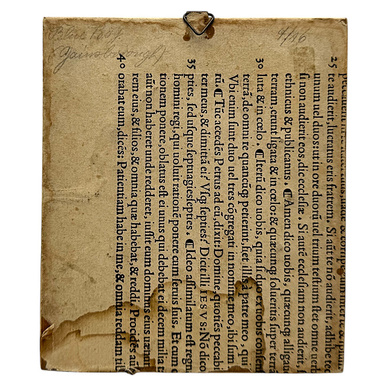 4/96
(Gainsborough)
25 te audierit, lucratus eris fratrem. Si aūt te nō audierit, adhibe tec
unum uel duos: ut in ore duorū uel trium testium stet omne
si non audierit eos, dic ecclesiæ. Si autē ecclesiam non audierit,
ethnicus & publicanus. ¶Amen dico uobis, quæcunq; alligaue
terram, erunt ligata & in cœlo: & quæcunq; solueritis super terrā
30 luta & in cœlo. ¶Iterū dico uobis, quia si duo ex uobis
terrā, de omni re quācūq; petierint, fiet illis a patre meo, qui
Vbi enim sunt duo uel tres cōgregati in nomine meo, ibi sum
rū. ¶Tūc accedēs Petrus ad eū, dixit: Domine, quoties peccabit
ter meus, & dimittā ei? Vsq; septies? Dicit illi IESVS: Nō dico
35 pties, sed usque septuagies septies. ¶Ideo assimilatum est regnū
homini regi, qui uoluit rationē ponere cum seruis suis. Et cum
tionem ponere, oblatus est ei unus, qui debebat ei decem milia
aūt non haberet unde redderet, iussit eum dominus eius uænun
rem eius, & filios, & omnia quæ habebat, & reddi. Procidēs
40 orabat eum, dicēs: Patientiam habe in me, & omnia reddam tibi